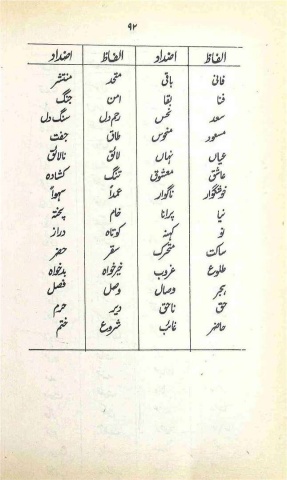 ۹۲
الفاظ اضداد الفاظ اضداد
فانی باقی متحد منتشر
فنا بقا امن جنگ
سعد نحس رحم دل سنگ دل
مسعود منحوس طاق جفت
عیاں نہاں لائق نالائق
عاشق معشوق تنگ کشادہ
خوشگوار ناگوار عمداً سہواً
نیا پرانا خام پختہ
نو کہنہ کوتاہ دراز
ساکت متحرک سفر حضر
طلوع غروب خیرخواہ بدخواہ
ہجر وصال وصل فصل
حق ناحق دیر حرم
حاضر غائب شروع ختم